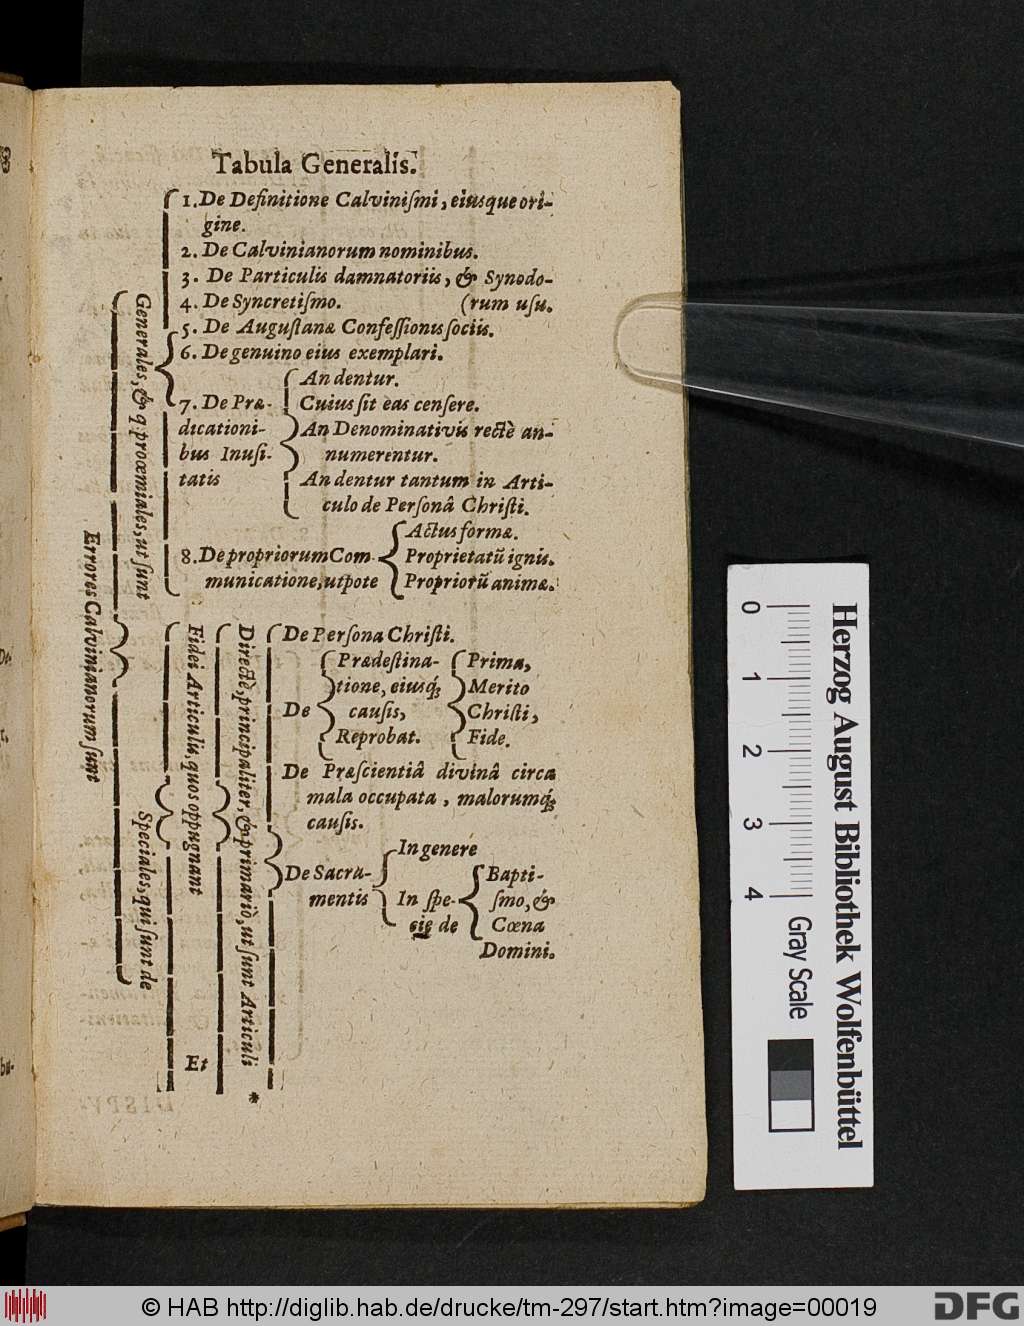 Tabula Generalis.
Errores Calvinianorum sunt
Generales, & q; proœmiales, ut sunt
1. De Definitione Calvinismi, eiusque ori-
gine.
2. De Calvinianorum nominibus.
3. De Particulis damnatoriis, & Synodo-
4. De Syncretismo. (rum usu.
5. De Augustanæ Confessionis sociis.
6. De genuino eius exemplari.
7. De Præ-
dicationi-
bus Inusi-
tatis
An dentur.
Cuius sit eas censere.
An Denominativis rectè an-
numerentur.
An dentur tantum in Arti-
culo de Personâ Christi.
8. De propriorum Com-
municatione, utpote
Actus formæ.
Proprietatũ ignis.
Propriorũ animæ.
Speciales, qui sunt de
Fidei Articulis, quos oppugnant
Directè, principaliter, & primariò, ut sunt Articuli
De Persona Christi.
De
Prædestina-
tione, eiusq́;
causis,
Reprobat.
Prima,
Merito
Christi,
Fide.
De Præscientiâ divinâ circa
mala occupata, malorumq́;
causis.
De Sacra-
mentis
In genere
In spe-
cie de
Bapti-
smo, &
Cœna
Domini.
Et
*
Herzog August Bibliothek Wolfenbüttel
0 1 2 3 4
Gray Scale
© HAB http://diglib.hab.de/drucke/tm-297/start.htm?image=00019
DFG